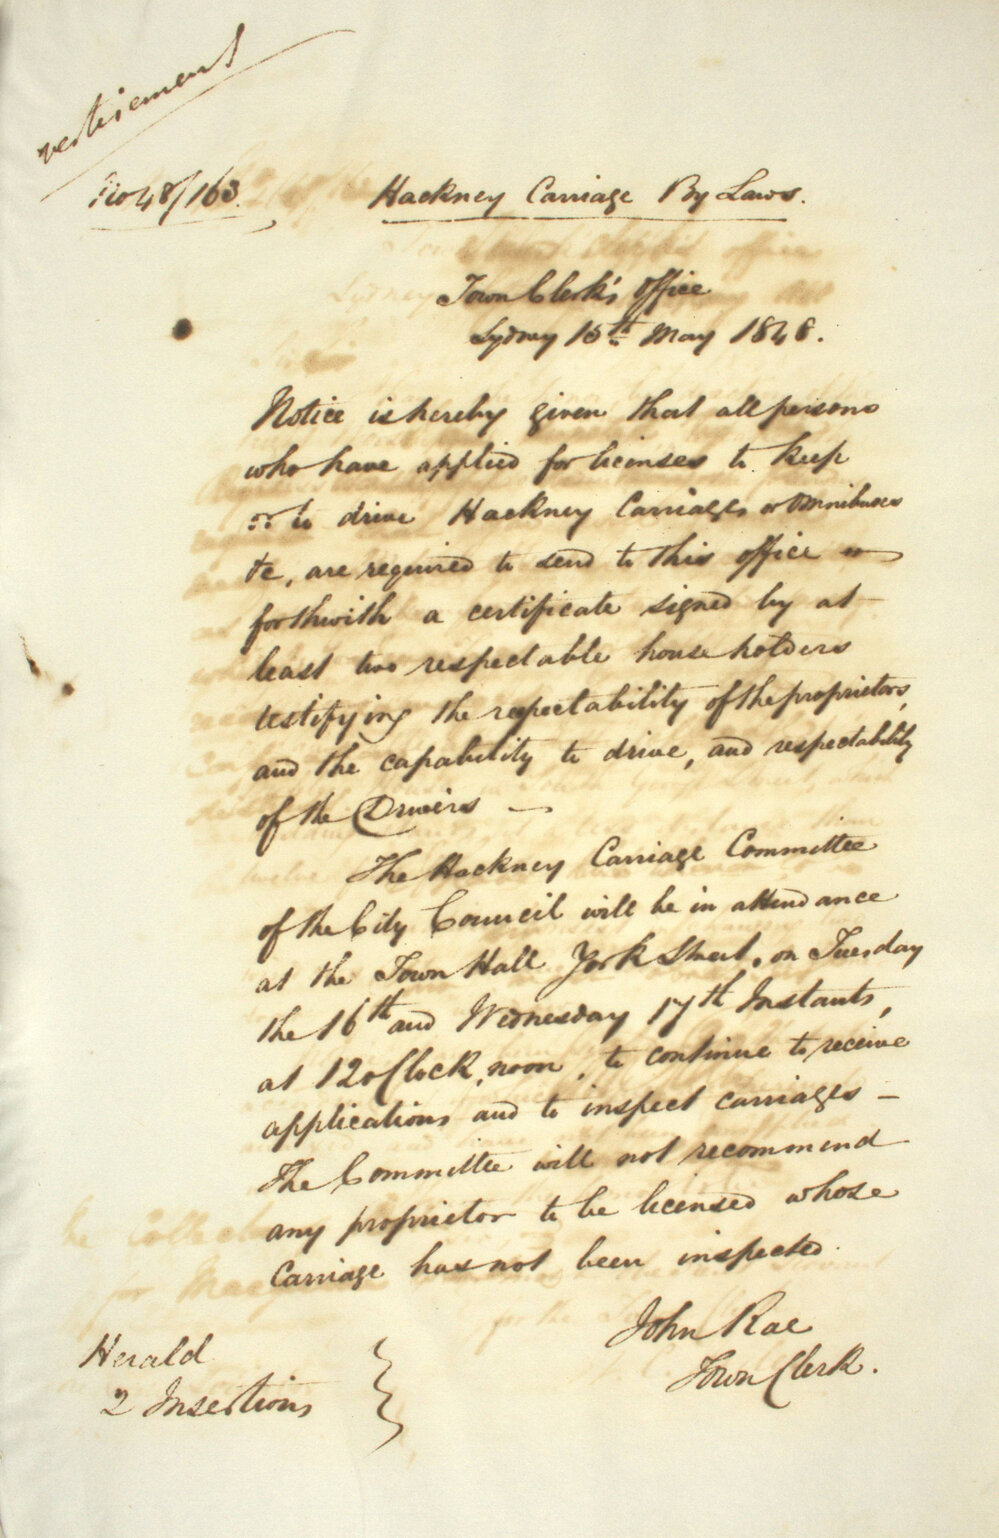 vertisement
No 48/163.
Hackney Carriage By Laws.
Town Clerk's Office
Sydney 15th May 1848.
Notice is hereby given that all persons
who have applied for licenses to keep
or to drive Hackney Carriages or Omnibuses
&c, are required to send to this office
forthwith a certificate signed by at
least two respectable house holders
testifying the respectability of the proprietors,
and the capability to drive, and respectability
of the Drivers —
The Hackney Carriage Committee
of the City Council will be in attendance
at the Town Hall York Street, on Tuesday
the 16th and Wednesday 17th Instants,
at 12 oClock, noon, to continue to receive
applications and to inspect carriages —
The Committee will not recommend
any proprietor to be licensed whose
Carriage has not been inspected.
John Rae
Town Clerk.
Herald
2 Insertions